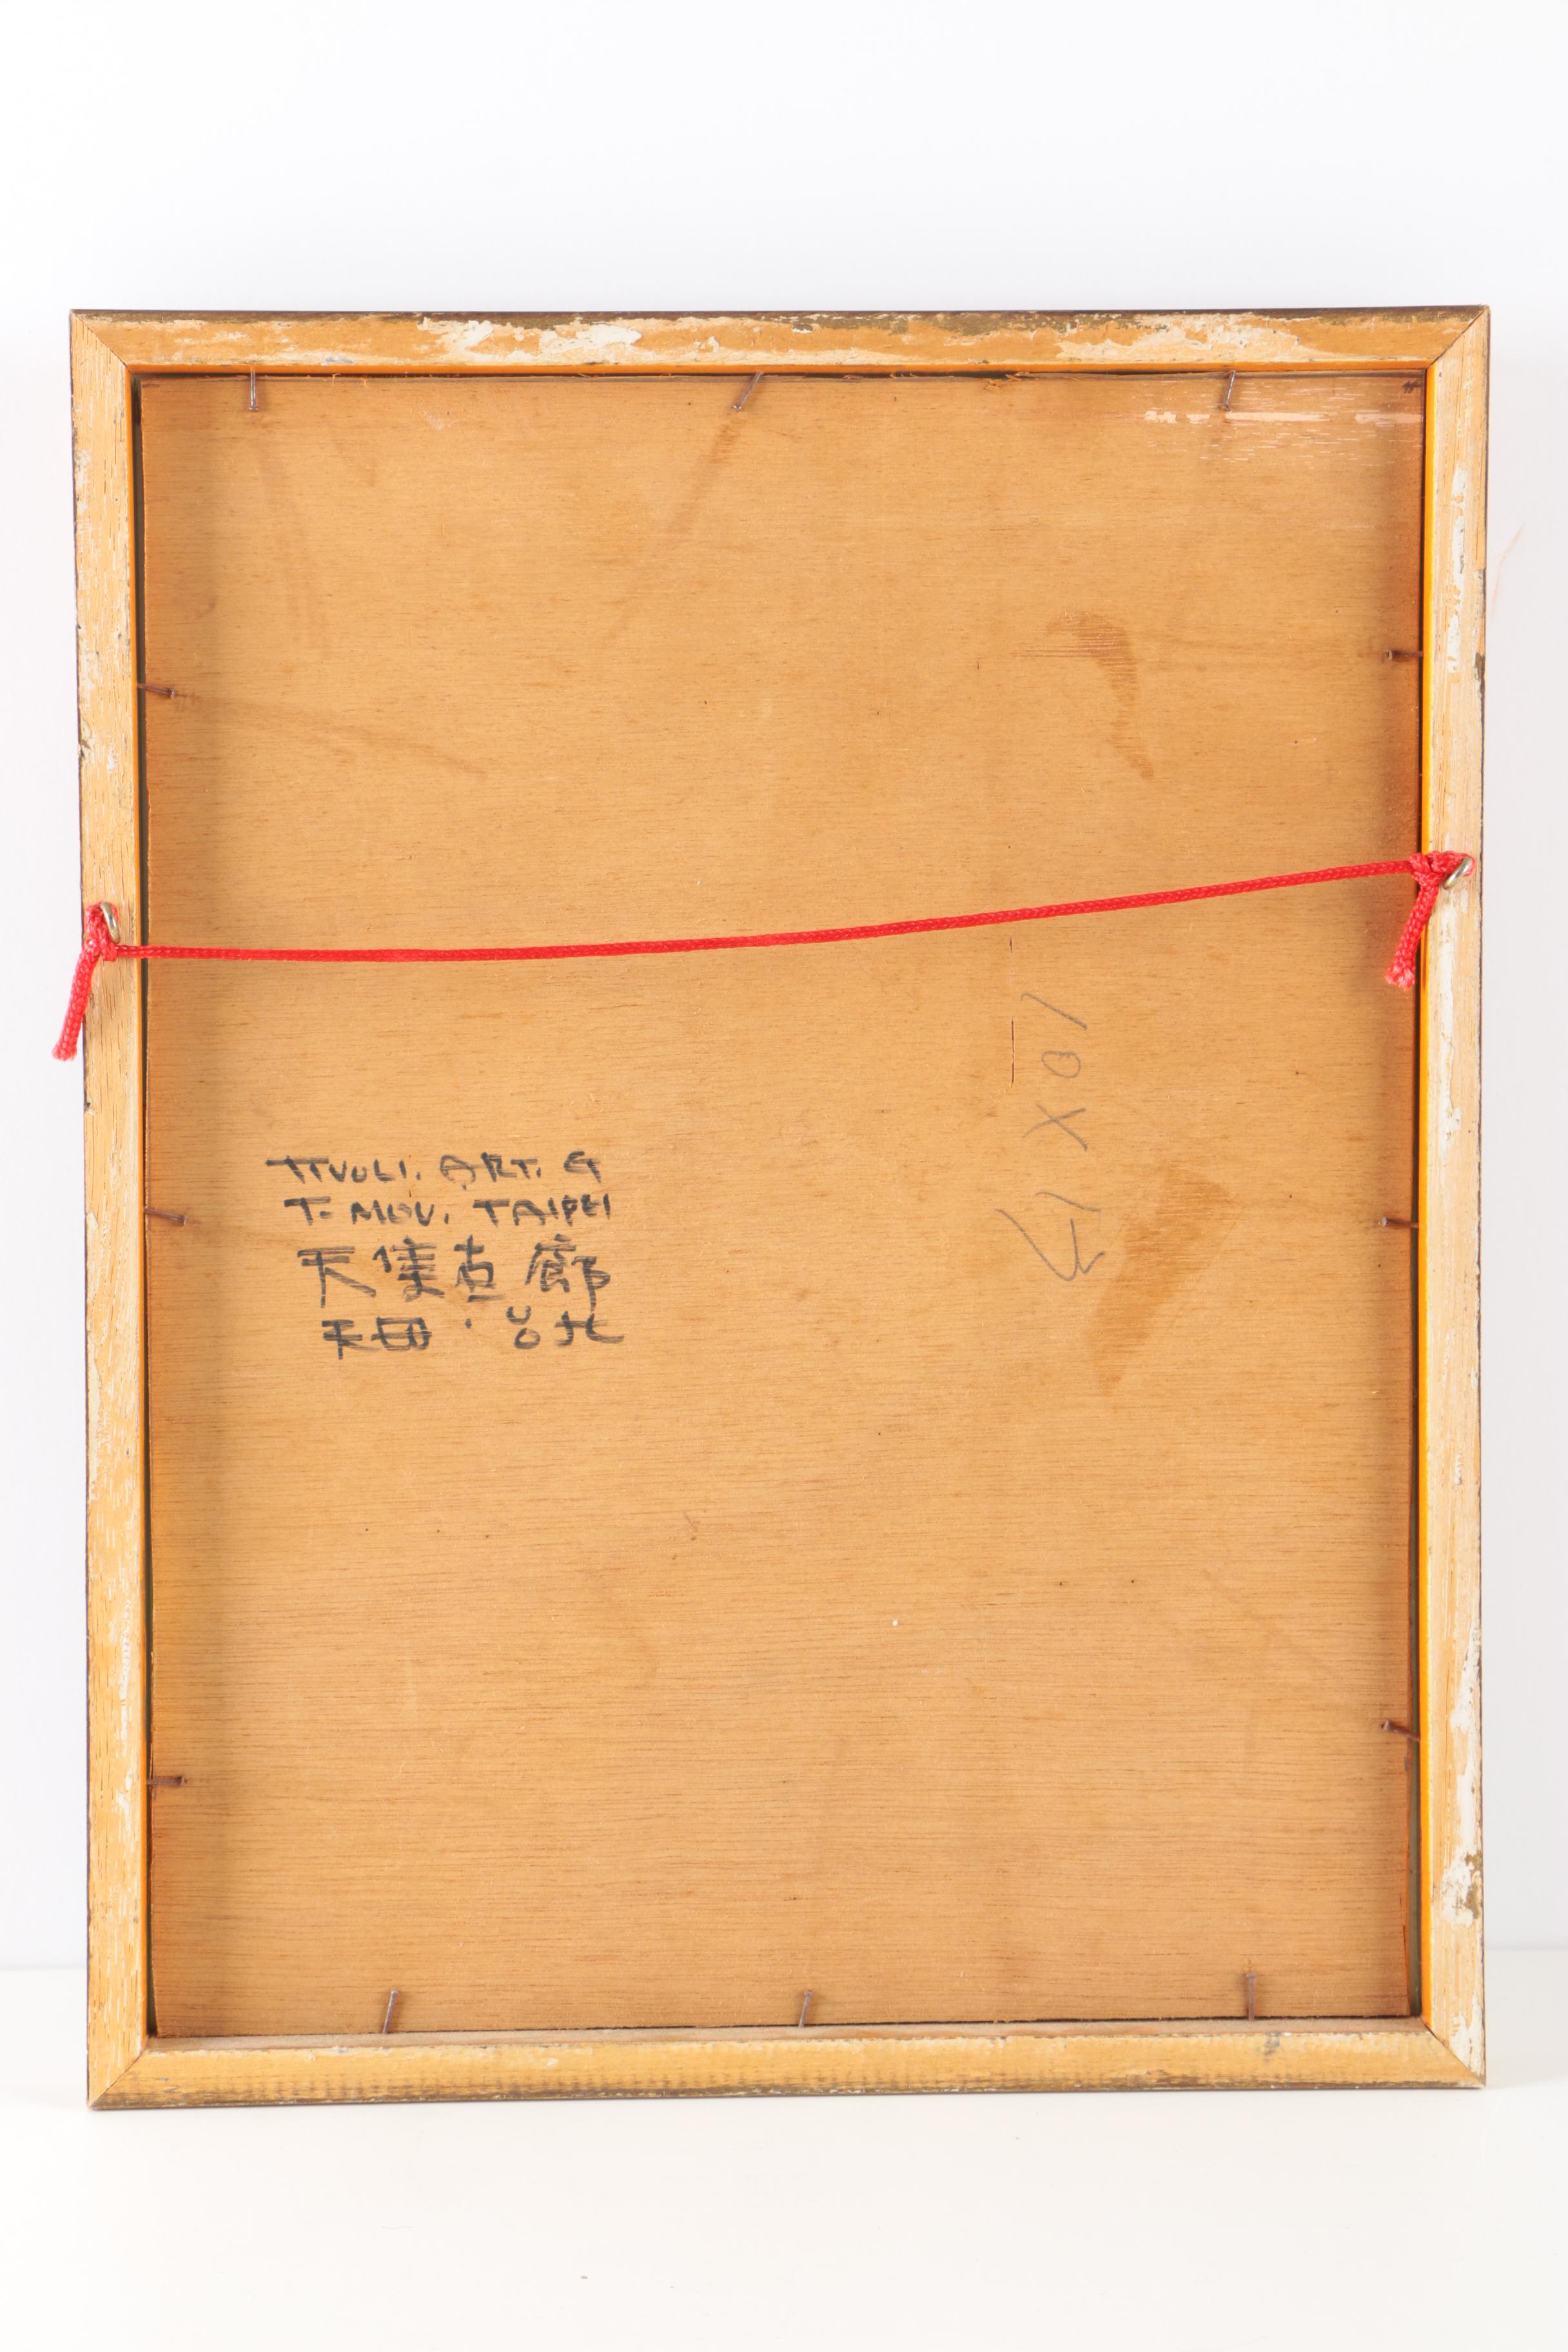 TIVOLI. ART. G
T. MOU. TAIPEI
天母・台北
10X13